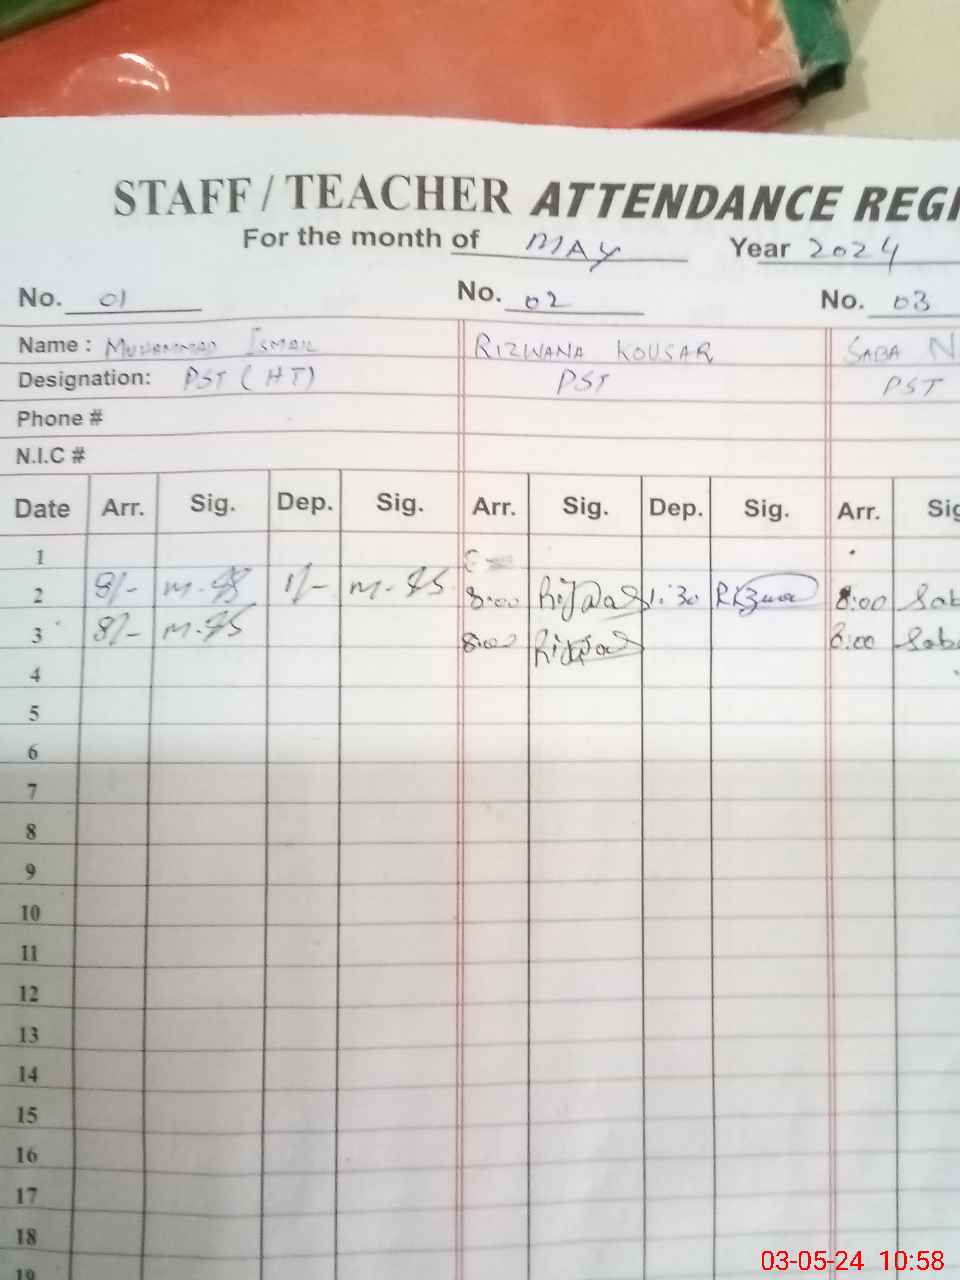 STAFF / TEACHER ATTENDANCE REGI
For the month of MAY Year 2024
No. 01 No. 02 No. 03
Name : MUHAMMAD ISMAIL RIZWANA KOUSAR SABA N
Designation: PST (HT) PST PST
Phone #
N.I.C #
Date Arr. Sig. Dep. Sig. Arr. Sig. Dep. Sig. Arr. Sig
1
2 8/- 1/- 8:00 1:30 8:00 Sab
3 8/- 8:00 8:00 Saba
4
5
6
7
8
9
10
11
12
13
14
15
16
17
18
19
03-05-24 10:58